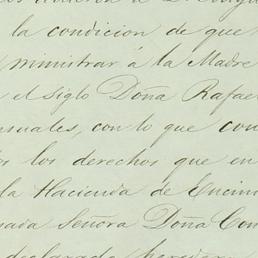 la condicion de que
ministrar á la Madre
el Siglo Doña Rafae
nsuales, con lo que con
os los derechos que en
la Hacienda de Encini
sada Señora Doña Con
declarada heredera